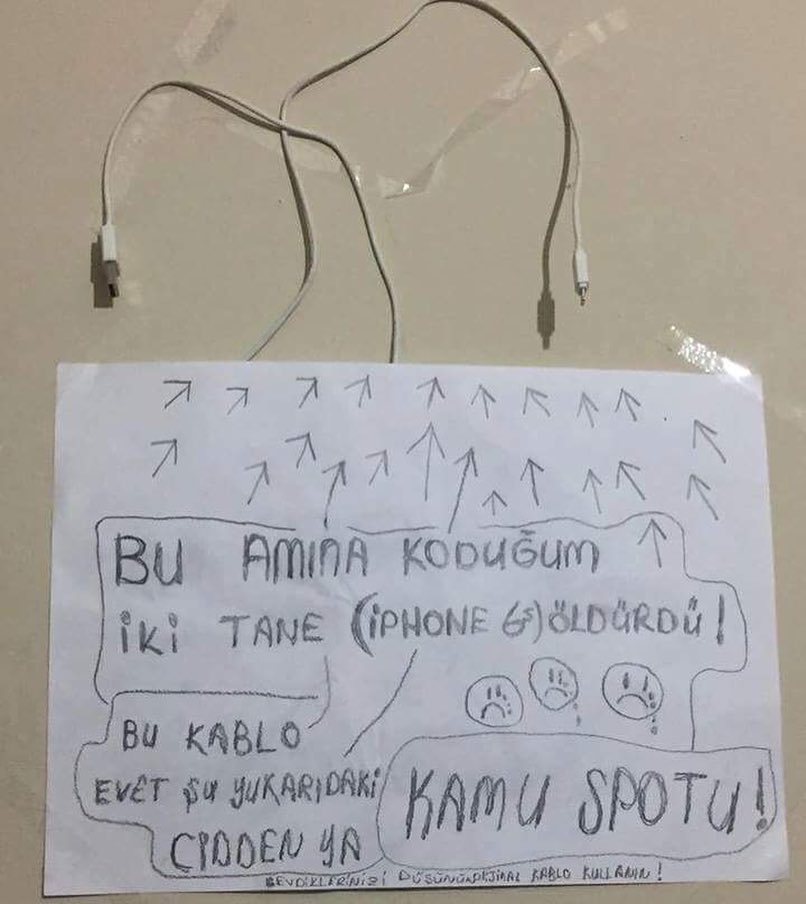 BU AMINA KODUĞUM
İKİ TANE (İPHONE 6S) ÖLDÜRDÜ!
BU KABLO
EVET ŞU YUKARIDAKİ
CİDDEN YA
KAMU SPOTU!
SEVDİKLERİNİZİ DÜŞÜNÜN ORJİNAL KABLO KULLANIN!